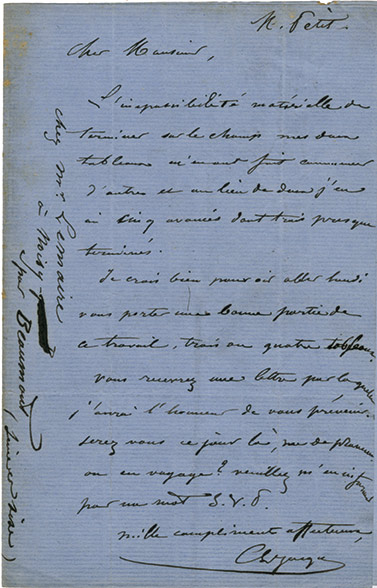 M. Petit.
Cher Monsieur,
L'impossibilité matérielle de
terminer sur le champs mes deux
tableaux m'ayant fait commencer
d'autres et au lieu de deux j'en
ai cinq avancés dont trois presque
terminés.
Je crois bien pouvoir aller lundi
vous porter une bonne partie de
ce travail, trois ou quatre tableaux.
vous recevrez une lettre par laquelle
j'aurai l'honneur de vous prévenir.
serez vous ce jour là, rue de
ou en voyage? veuillez m'en informer
par un mot S.V.P.
mille compliments affectueux,
Ch Jacque
chez Mr Lemaire
à Noisy
par Beaumont
(Seine et Oise)